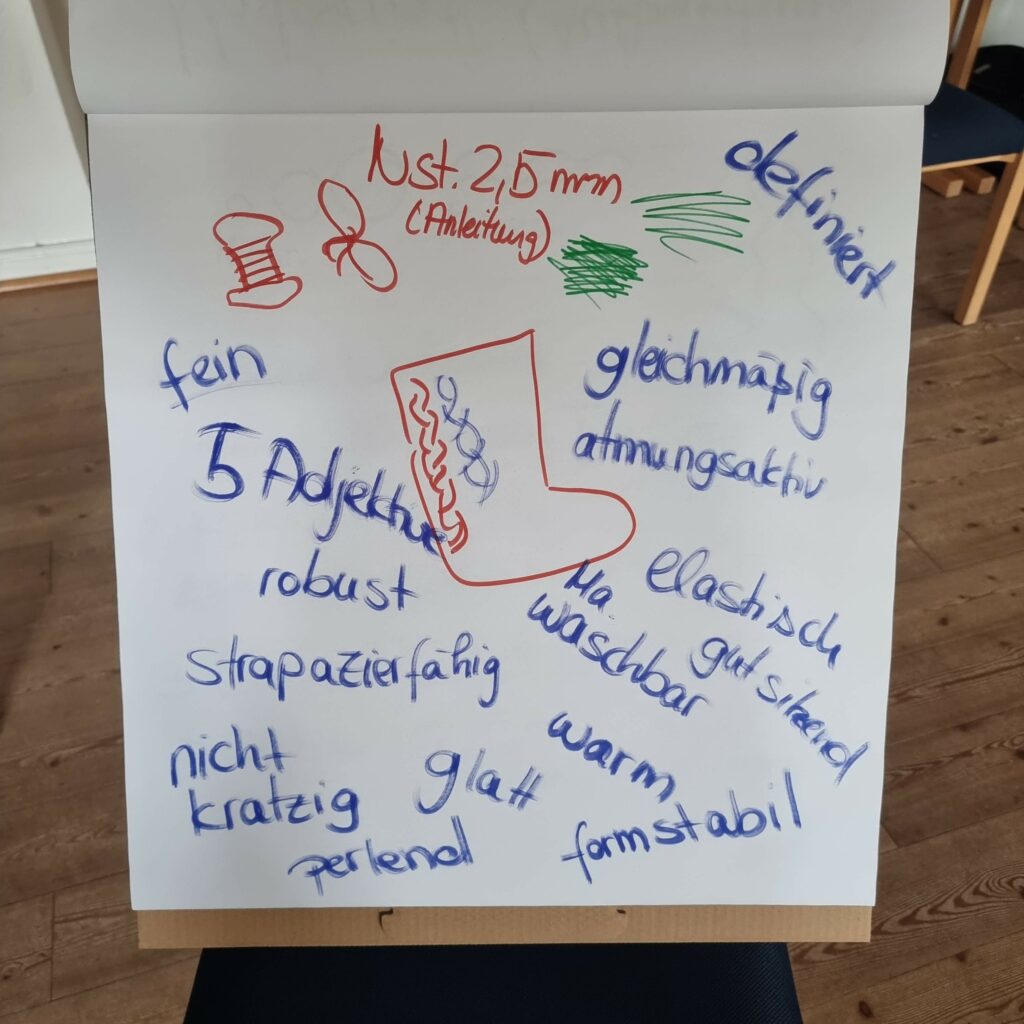 Nst. 2,5 mm
(Anleitung)
definiert
fein
gleichmäßig
5 Adjektive
atmungsaktiv
robust
elastisch
Ma.
waschbar
gut sitzend
strapazierfähig
nicht
kratzig
glatt
warm
perlend
formstabil